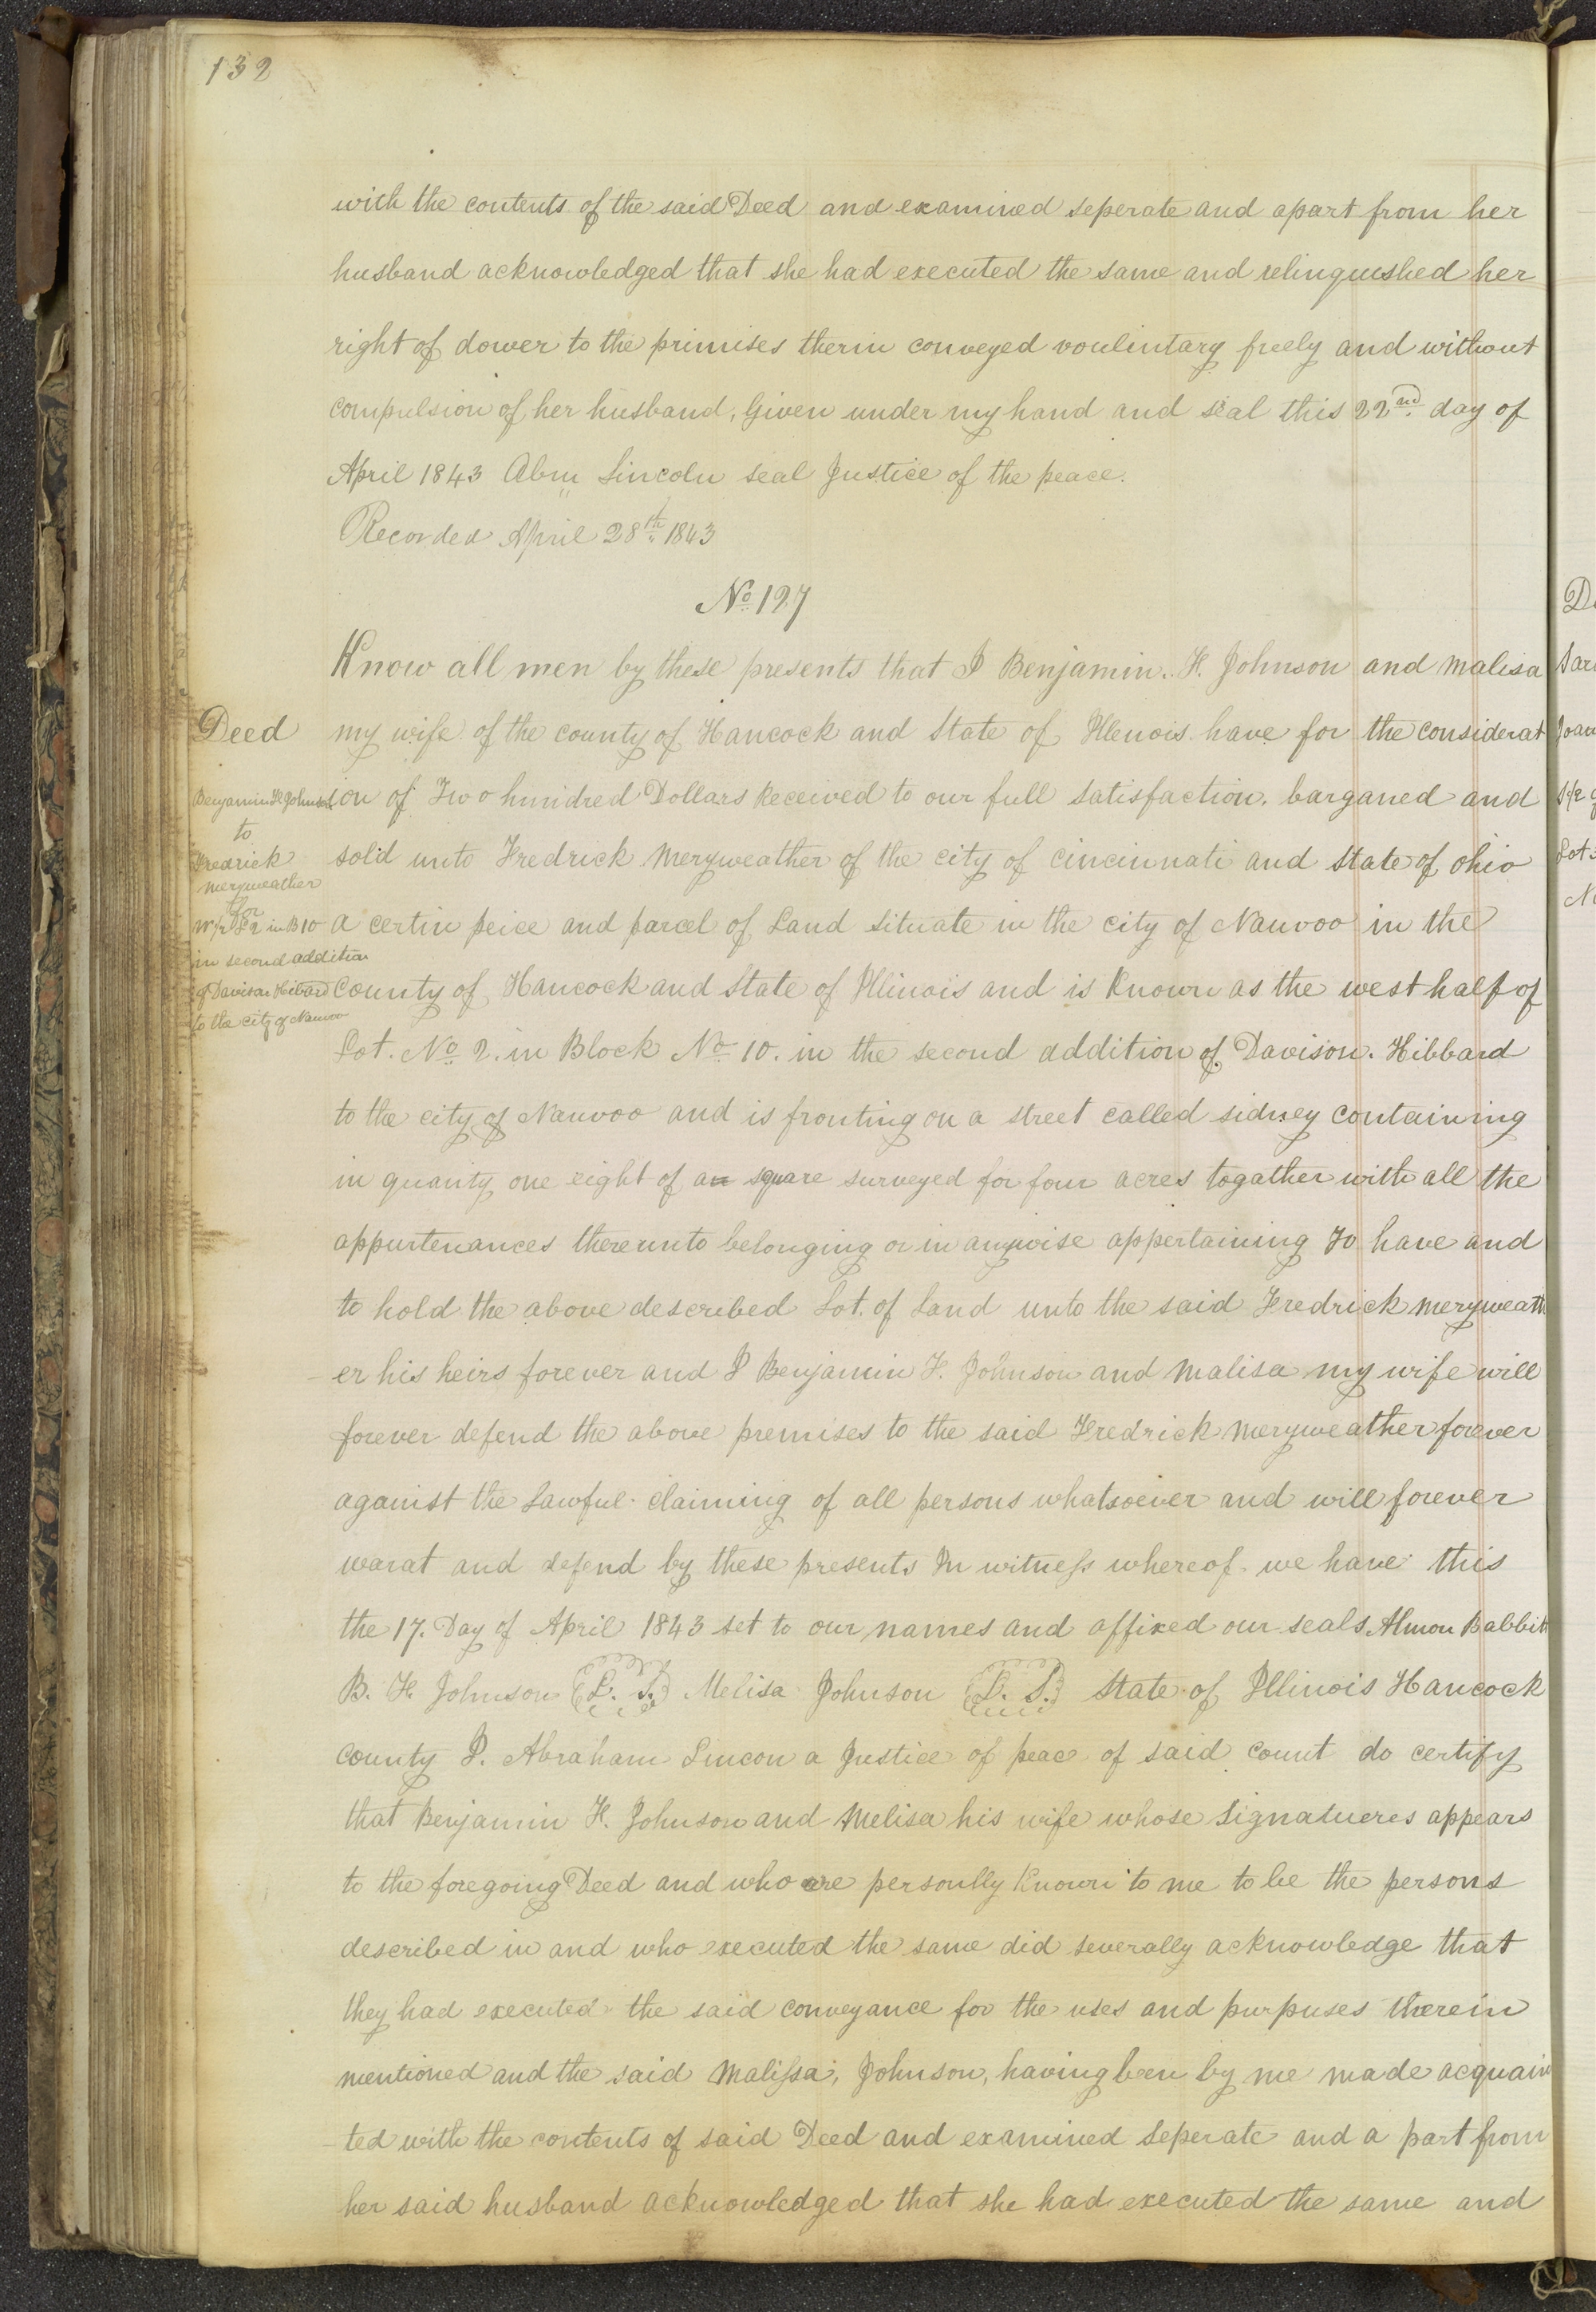 132
with the contents of the said Deed and examined seperate and apart from her
husband acknowledged that she had executed the same and relinquished her
right of dower to the primises therin conveyed voulintary freely and without
compulsion of her husband, Given under my hand and seal this 22nd day of
April 1843 Abm Lincoln seal Justice of the peace.
Recorded April 28th 1843
No 127
Know all men by these presents that I Benjamin. F. Johnson and Malisa
Deed
my wife of the county of Hancock and State of Illenois have for the considerat
Benjamin F Johnson
ion of Two hundred Dollars Received to our full satisfaction. barganed and
to
Fredrick
sold unto Fredrick Meryweather of the city of cincinnati and State of ohio
Meryweather
for
W 1/2 L 2 in B 10
a certin peice and parcel of Land situate in the city of Nauvoo in the
in second addition
of Davison Hibard
County of Hancock and State of Illinois and is Known as the west half of
to the city of Nauvoo
Lot. No 2. in Block No 10. in the second addition of Davison. Hibbard
to the city of Nauvoo and is fronting on a street called sidney containing
in quanity one eight of an square surveyed for four acres togather with all the
appurtenances thereunto belonging or in anywise appertaining To have and
to hold the above described Lot. of Land unto the said Fredrick Meryweath
er his heirs forever and I Benjamin F. Johnson and Malisa my wife will
forever defend the above premises to the said Fredrick Meryweather forever
against the Lawful claiming of all persons whatsoever and will forever
warat and defend by these presents In witness whereof we have this
the 17. Day of April 1843 set to our names and affixed our seals Almon Babbit
B. F. Johnson L. S. Melisa Johnson L. S. State of Illinois Hancock
county I. Abraham Lincon a Justice of peac of said count do certify
that Benjamin F. Johnson and Melisa his wife whose Signatueres appears
to the foregoing Deed and who are personlly Known to me to be the persons
described in and who executed the same did severally acknowledge that
they had executed the said conveyance for the uses and purpuses therein
mentioned and the said Malissa, Johnson, having been by me made acquain
ted with the contents of said Deed and examined Seperate and a part from
her said husband acknowledged that she had executed the same and